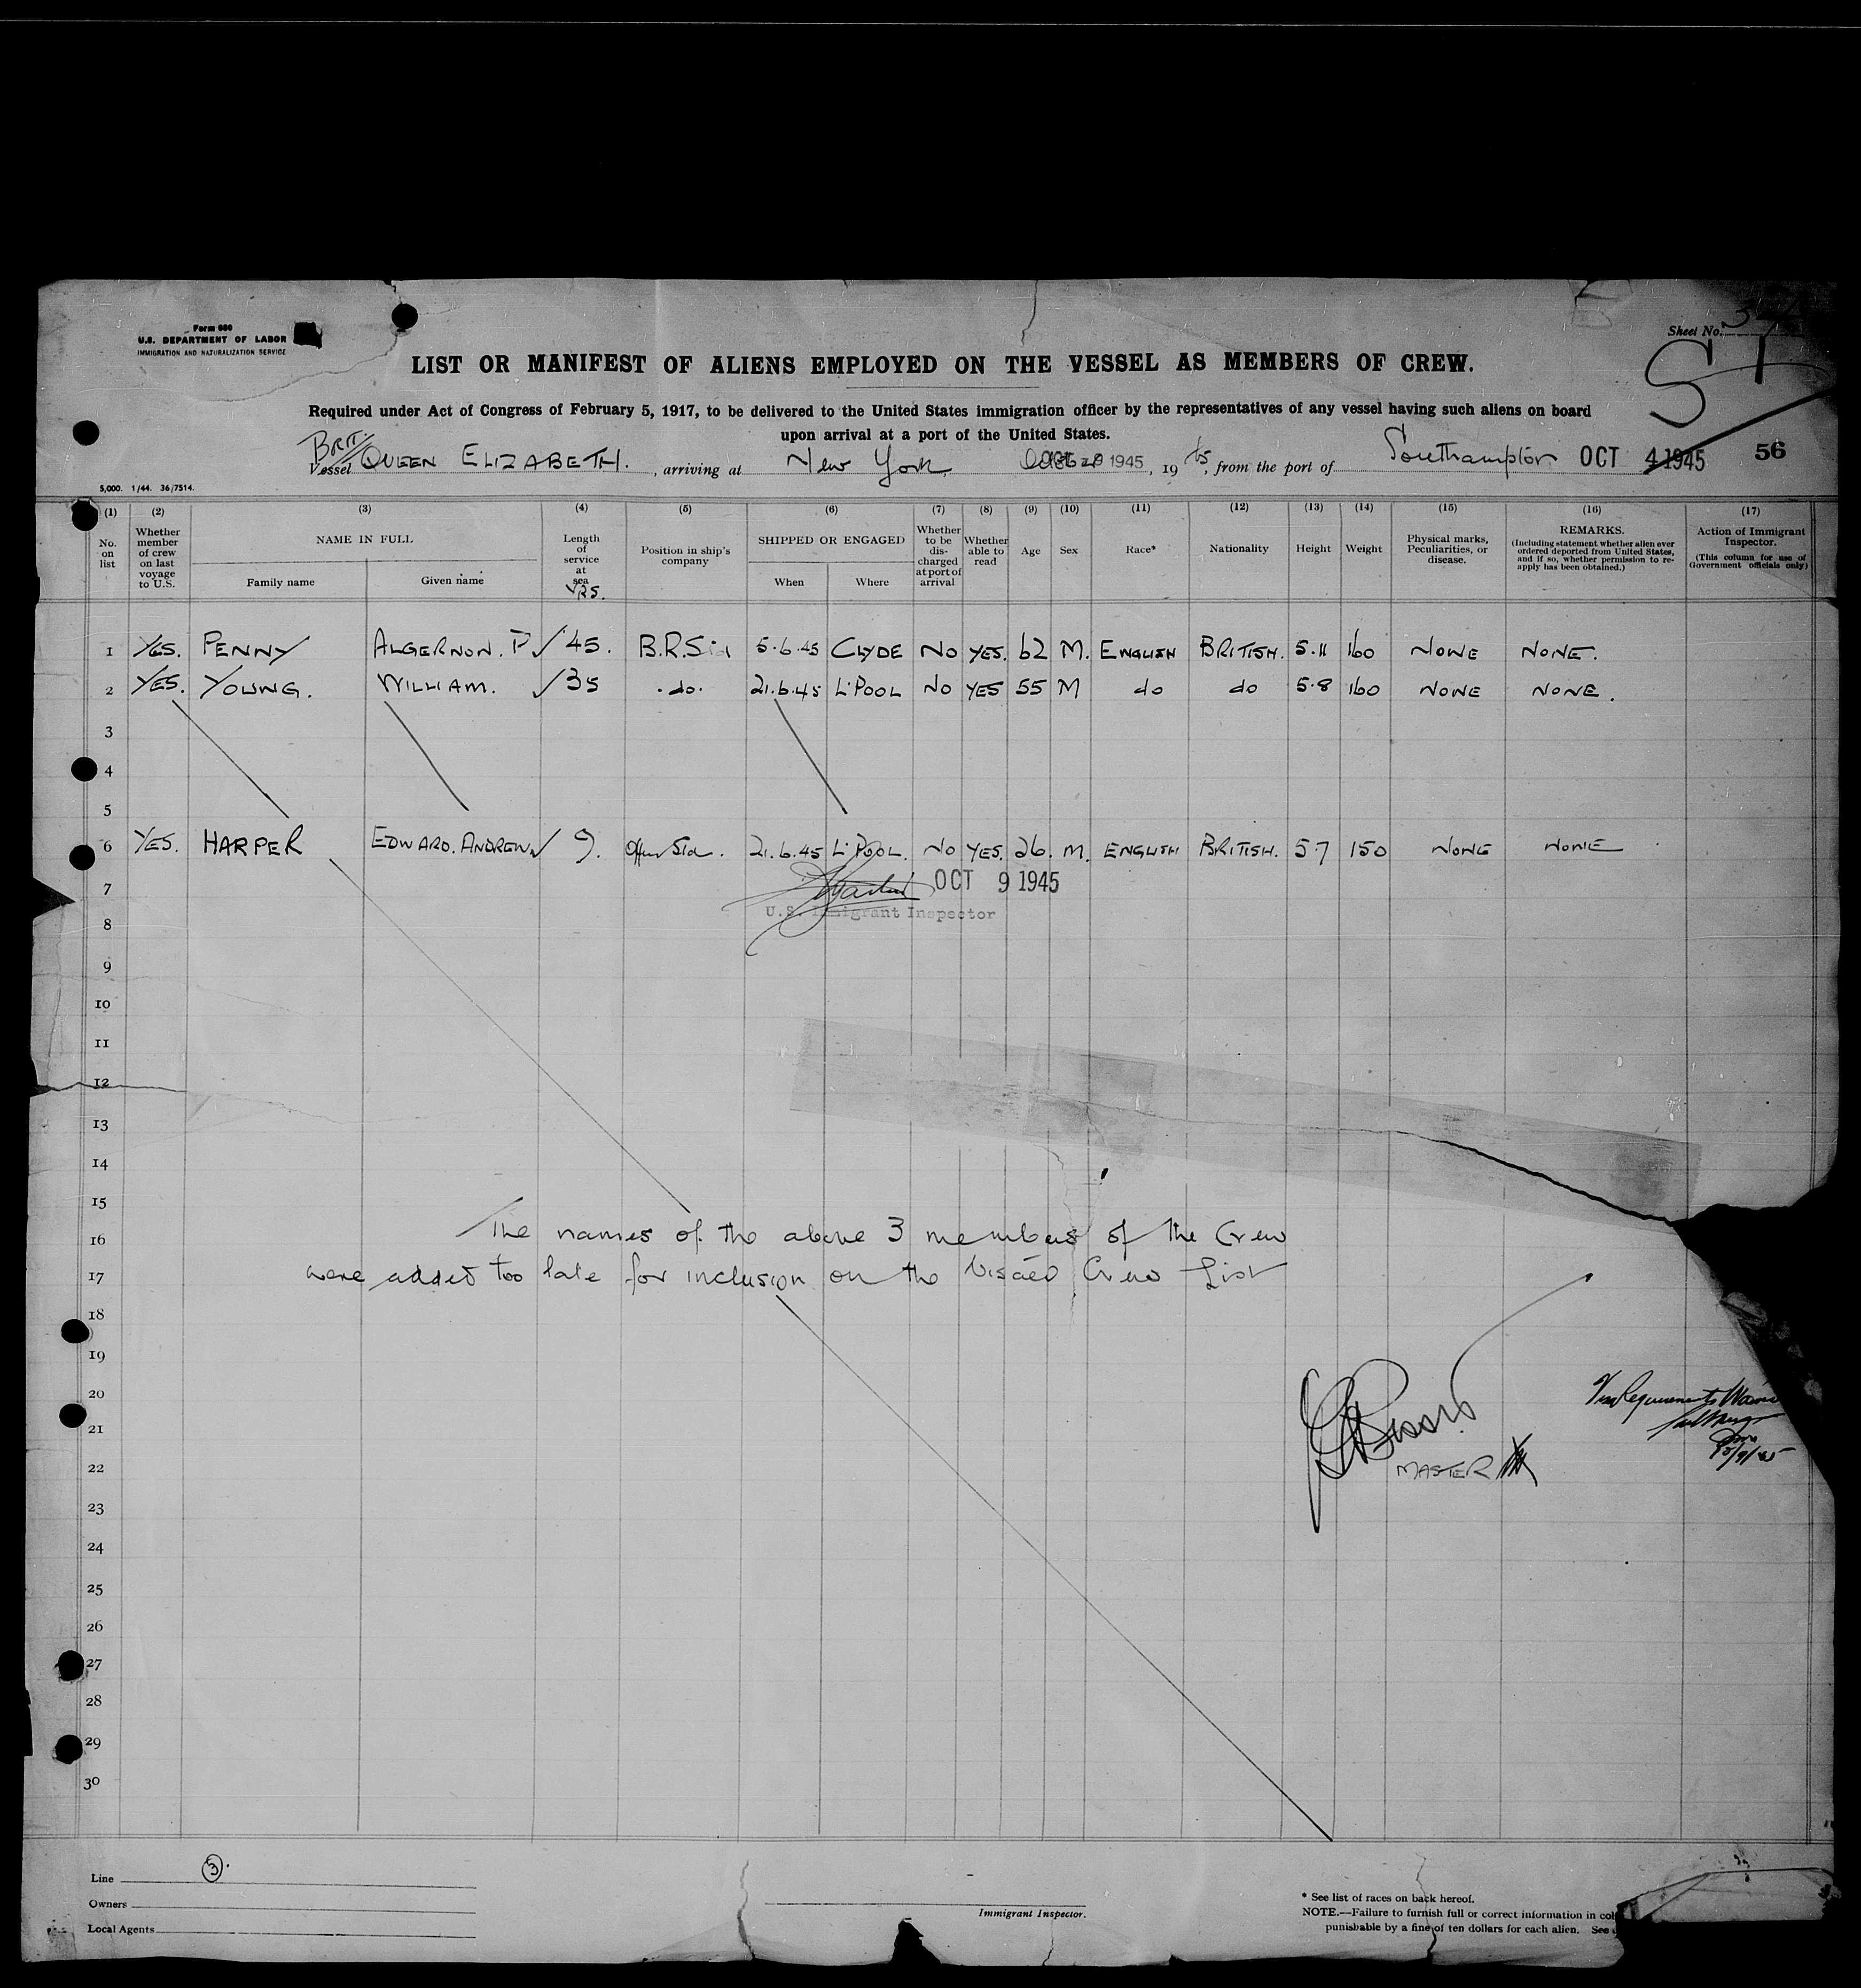 Form 680
U.S. DEPARTMENT OF LABOR
IMMIGRATION AND NATURALIZATION SERVICE
Sheet No.
LIST OR MANIFEST OF ALIENS EMPLOYED ON THE VESSEL AS MEMBERS OF CREW.
Required under Act of Congress of February 5, 1917, to be delivered to the United States immigration officer by the representatives of any vessel having such aliens on board
upon arrival at a port of the United States.
BRIT.
Vessel QUEEN ELIZABETH. , arriving at New York 1945 , 19 45, from the port of Southampton OCT 4 1945 56
5,000. 1/44. 36/7514.
(1) (2) (3) (4) (5) (6) (7) (8) (9) (10) (11) (12) (13) (14) (15) (16) (17)
No. on list
Whether member of crew on last voyage to U.S.
NAME IN FULL
Family name
Given name
Length of service at sea YRS.
Position in ship's company
SHIPPED OR ENGAGED
When
Where
Whether to be discharged at port of arrival
Whether able to read
Age
Sex
Race*
Nationality
Height
Weight
Physical marks, Peculiarities, or disease.
REMARKS.
(Including statement whether alien ever ordered deported from United States, and if so, whether permission to re-apply has been obtained.)
Action of Immigrant Inspector.
(This column for use of Government officials only)
1 YES. PENNY ALGERNON. P ✓ 45. B.R.Sid 5.6.45 CLYDE NO YES. 62 M. ENGLISH BRITISH. 5.11 160 NONE NONE.
2 YES. YOUNG. WILLIAM. ✓ 35 .do. 21.6.45 L'POOL NO YES 55 M do do 5.8 160 NONE NONE.
3
4
5
6 YES. HARPER EDWARD. ANDREW. ✓ 9. 21.6.45 L'POOL. NO YES. 26. M. ENGLISH BRITISH. 5 7 150 NONE NONE
7 OCT 9 1945
U.S. Immigrant Inspector
8
9
10
11
12
13
14
15
16 The names of the above 3 members of the Crew
17 were added too late for inclusion on the Visaed Crew List
18
19
20
21
22 MASTER
23
24
25
26
27
28
29
30
Line 3.
Owners
Local Agents
Immigrant Inspector.
* See list of races on back hereof.
NOTE.—Failure to furnish full or correct information in
punishable by a fine of ten dollars for each alien. See